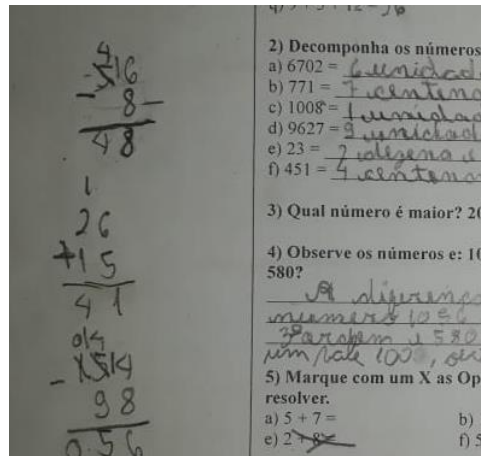 4
516
- 8
48
1
26
+15
41
014
1514
- 98
0.56
2) Decomponha os números
a) 6702 = 6 unidad
b) 771 = 7 centena
c) 1008 = 1 unidad
d) 9627 = 9 unidad
e) 23 = 2 dezena e
f) 451 = 4 centena
3) Qual número é maior? 20
4) Observe os números e: 10
580?
A diferença
numero 1056
3ª ardem e 580
um vale 1000,
5) Marque com um X as Op
resolver.
a) 5 + 7 = b)
e) 2 + 8 = f) 5